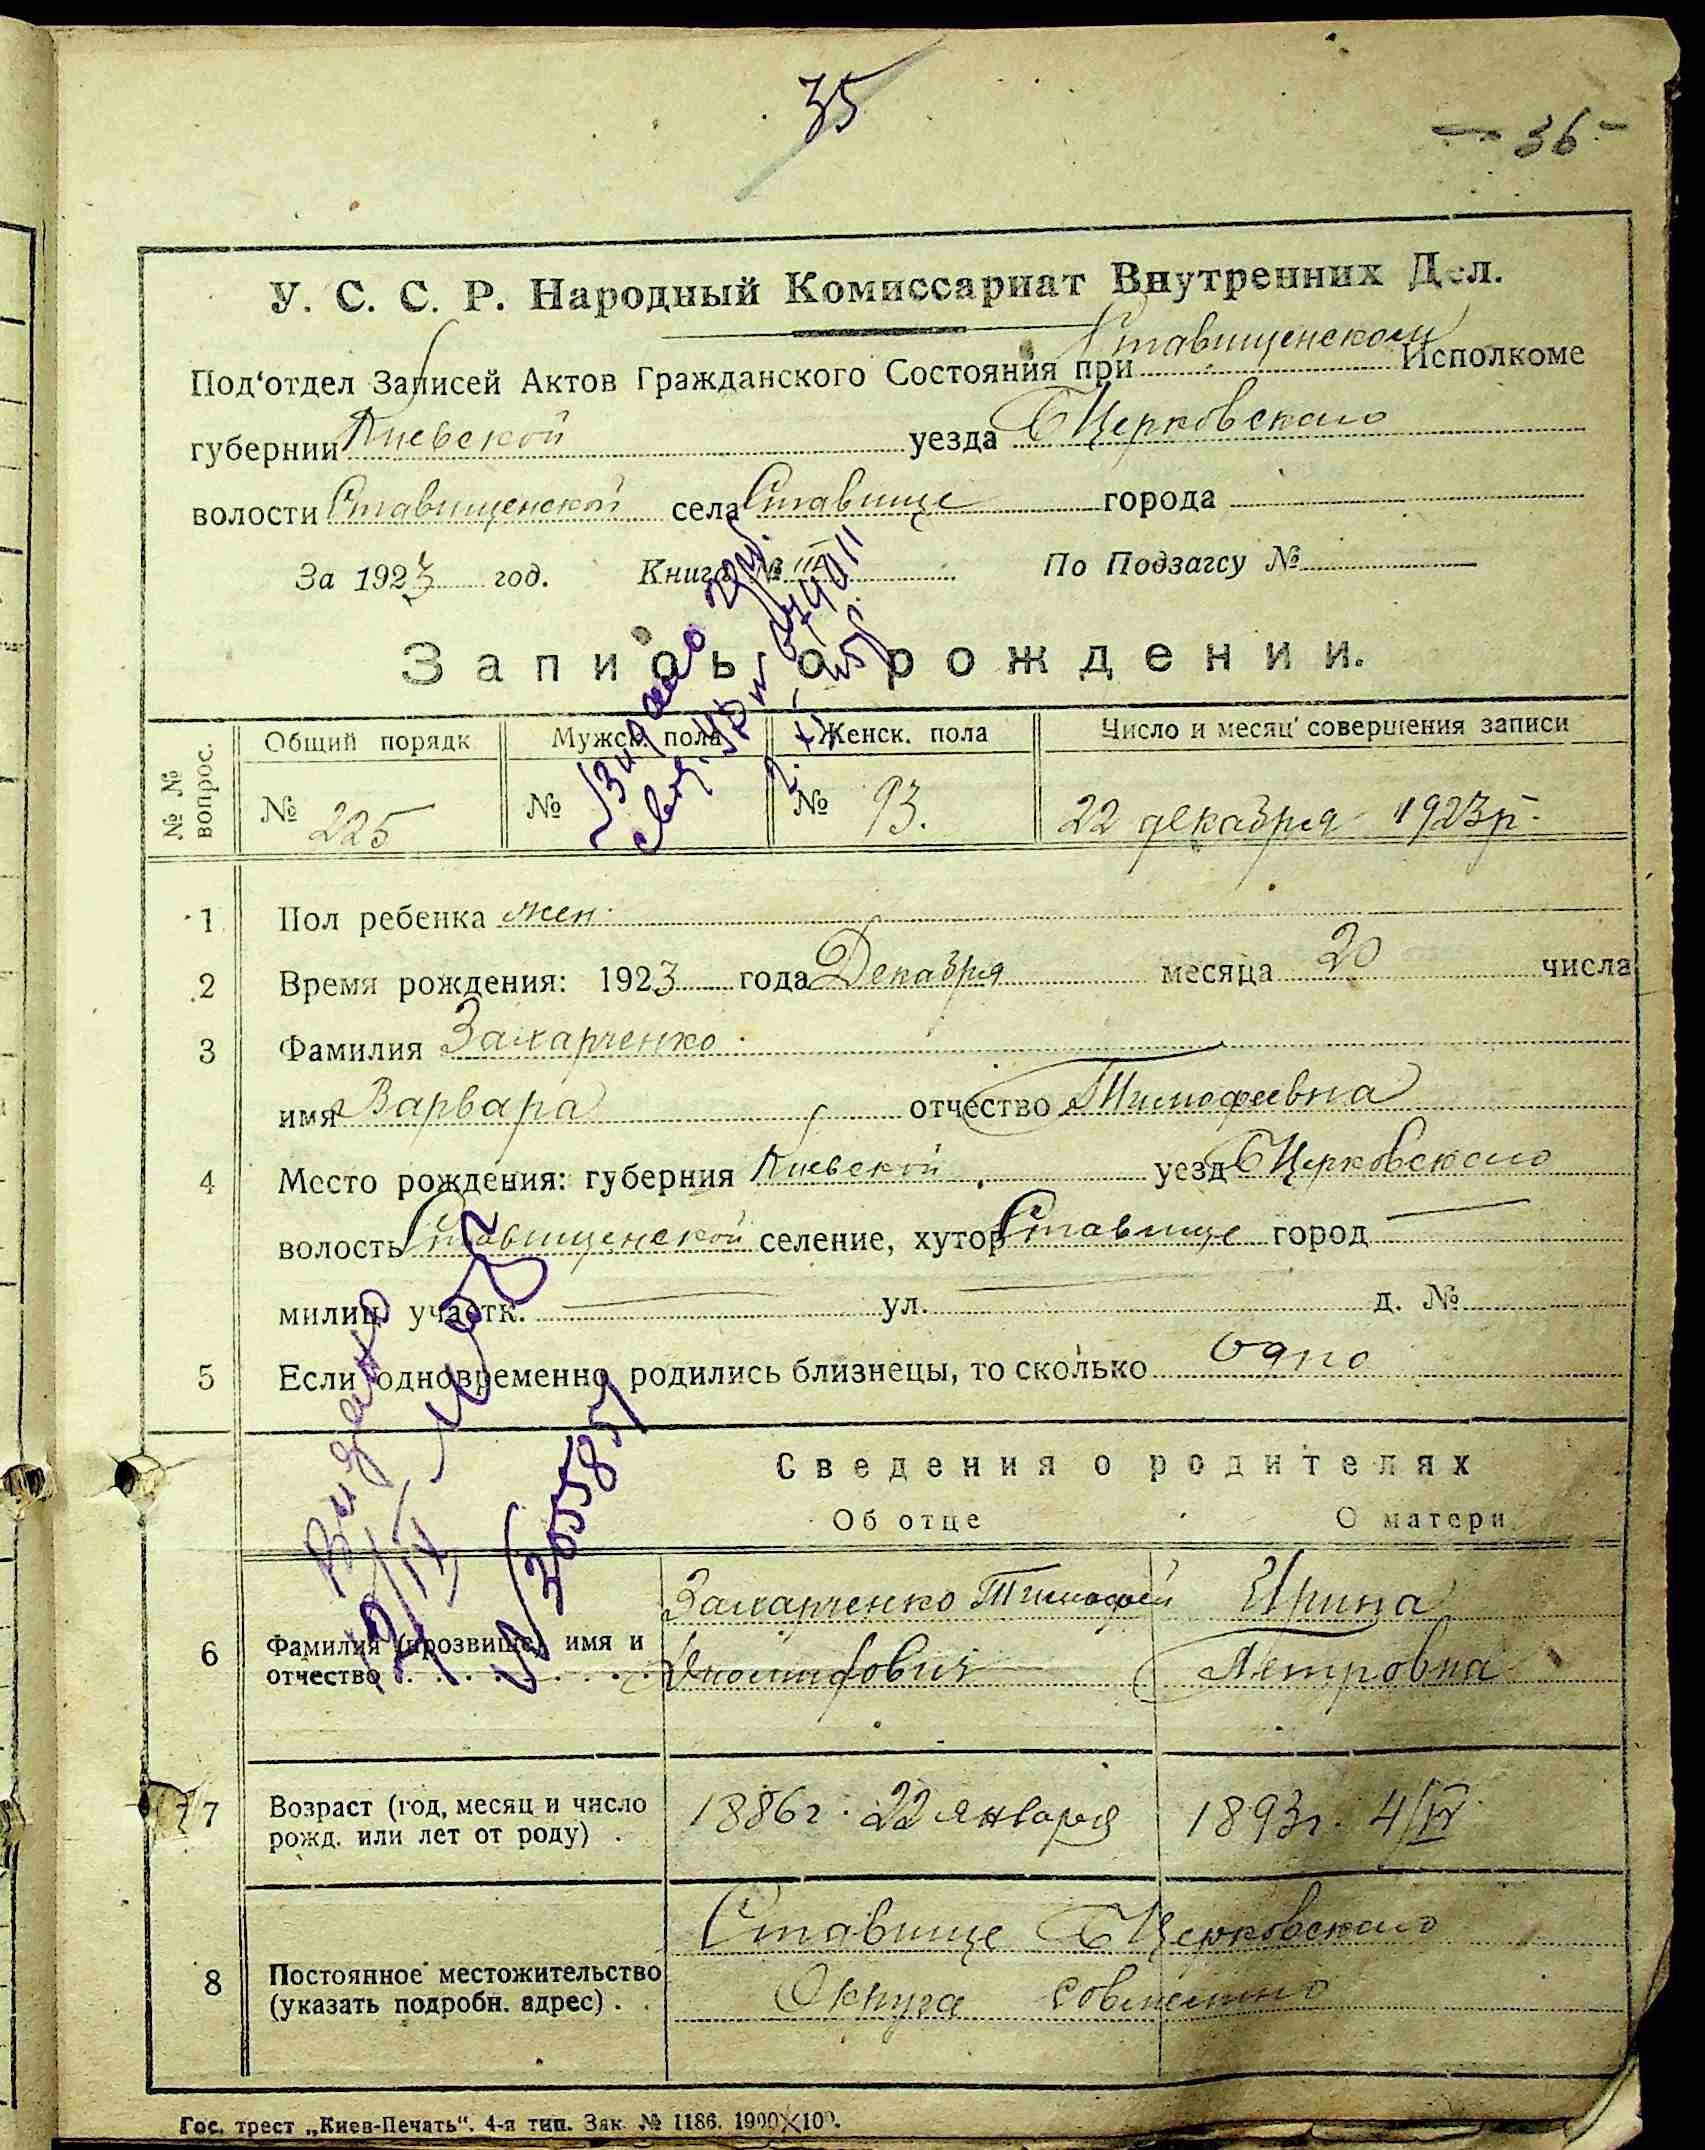 35
- 36 -
У. С. С. Р. Народный Комиссариат Внутренних Дел.
Под'отдел Записей Актов Гражданского Состояния при Ставищенском Исполкоме
губернии Киевской уезда БЦерковского
волости Ставищенской села Ставище города
За 1923 год. Книга № III По Подзагсу №
Запись о рождении.
№ № вопрос. Общий порядк Мужск. пола Женск. пола Число и месяц совершения записи
№ 225 № № 93. 22 декабря 1923 г.
1 Пол ребенка жен.
2 Время рождения: 1923 года Декабря месяца 20 числа
3 Фамилия Захарченко
имя Варвара отчество Тимофеевна
4 Место рождения: губерния Киевской уезд БЦерковского
волость Ставищенской селение, хутор Ставище город —
милиц. участк. — ул. — д. №
5 Если одновременно родились близнецы, то сколько одно
Сведения о родителях
Об отце О матери
6 Фамилия (прозвище), имя и отчество
Захарченко Тимофей
Иосифович
Ирина
Петровна
7 Возраст (год, месяц и число рожд. или лет от роду) .
1886 г. 22 января
1893 г. 4/IV
8 Постоянное местожительство
(указать подробн. адрес) . .
Ставище БЦерковского
Округа совместно
Видано
Гос. трест „Киев-Печать“. 4-я тип. Зак. № 1186. 1900×100.